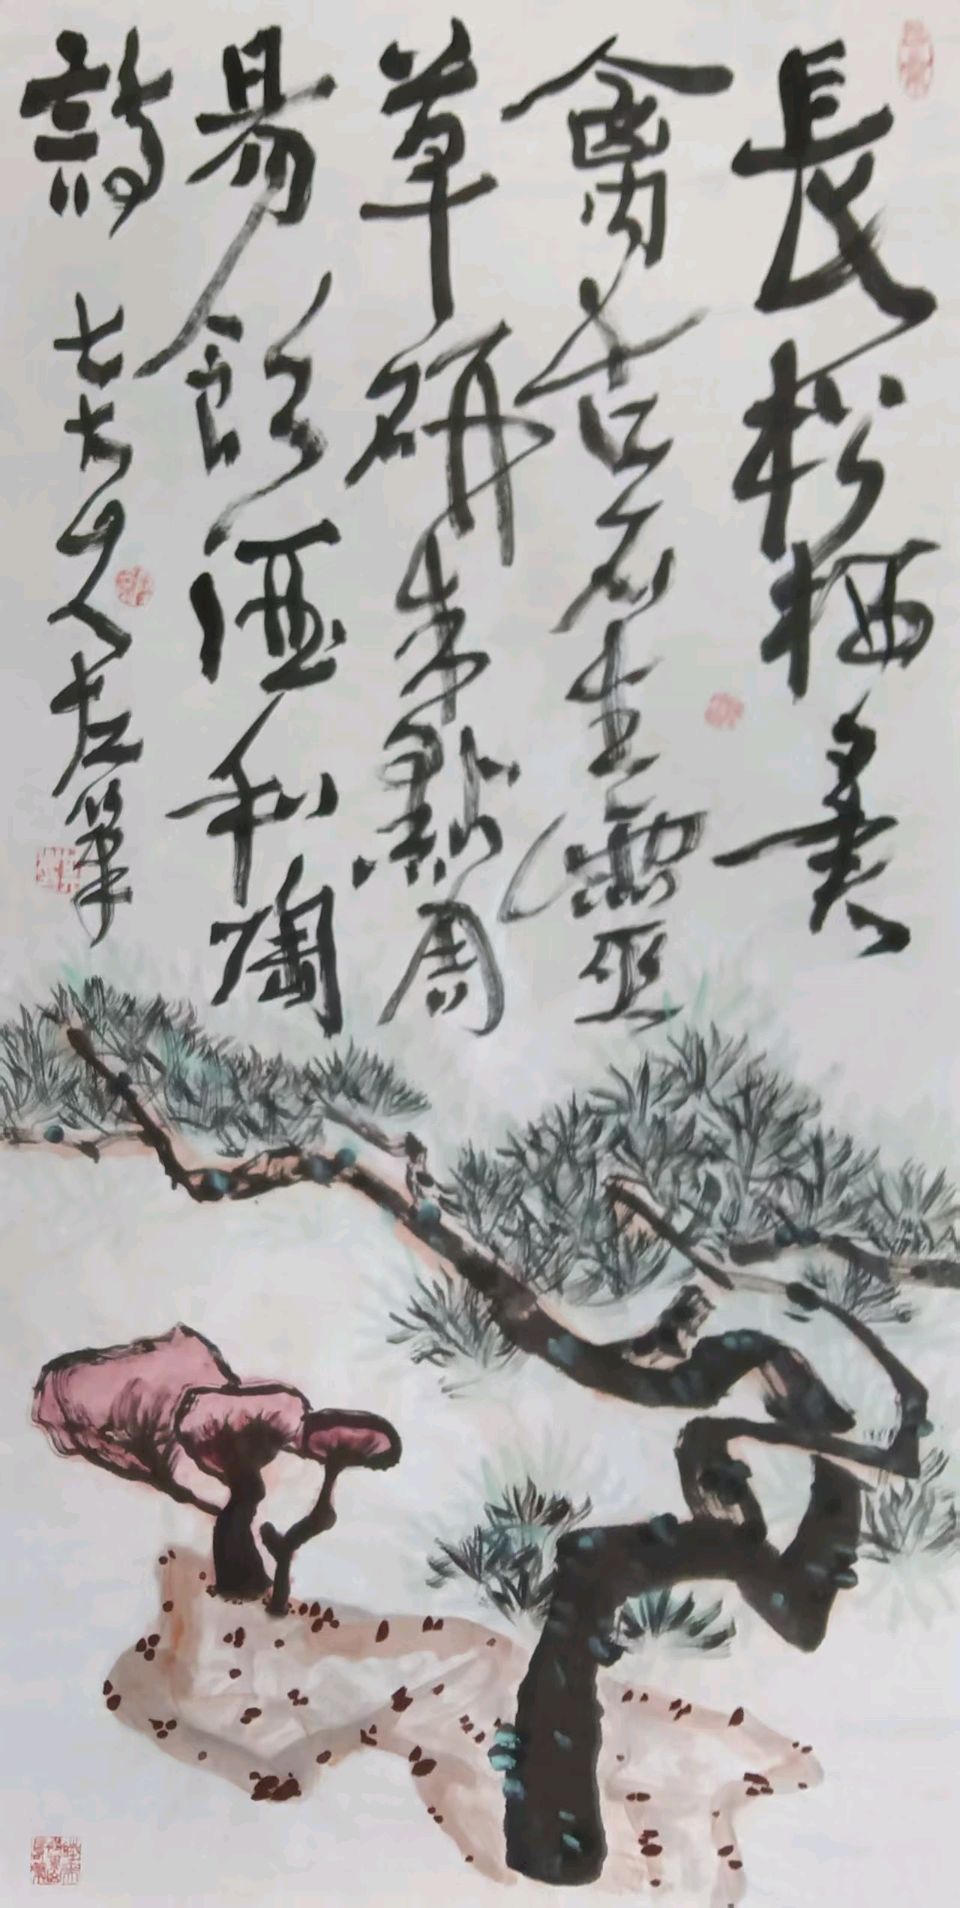 長松栖異
禽古石生靈
草研朱點周
易飲酒和陶
詩 七六叟左筆